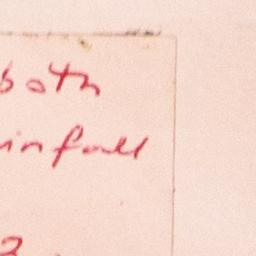 both
infall
3.